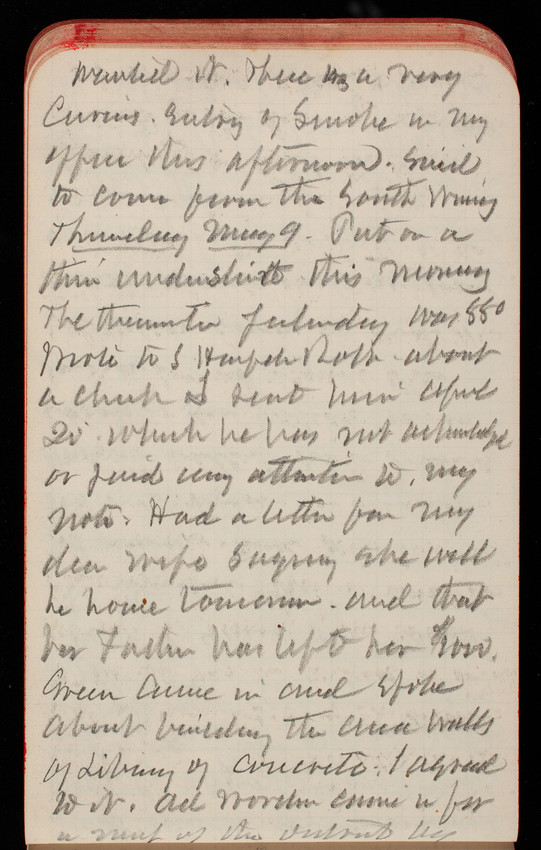 wanted it. There was a very
Curious Entry of Smoke in my
office this afternoon. Said
to come from the South Wing
Thursday May 9. Put on a
thin undershirt this morning
The thermometer yesterday was 88°
Wrote to S about
a check I sent him
20 which he has not acknowledge
or paid any attention to, my
note. Had a letter from my
dear wife saying she will
be home tomorrow. and that
her Father has left her
Green Came in and spoke
about building the area walls
of Library of concrete. I agreed
to it. came in for
a of the